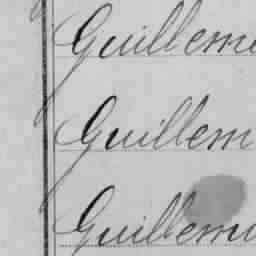 Guilleme
Guillem
Guillemi